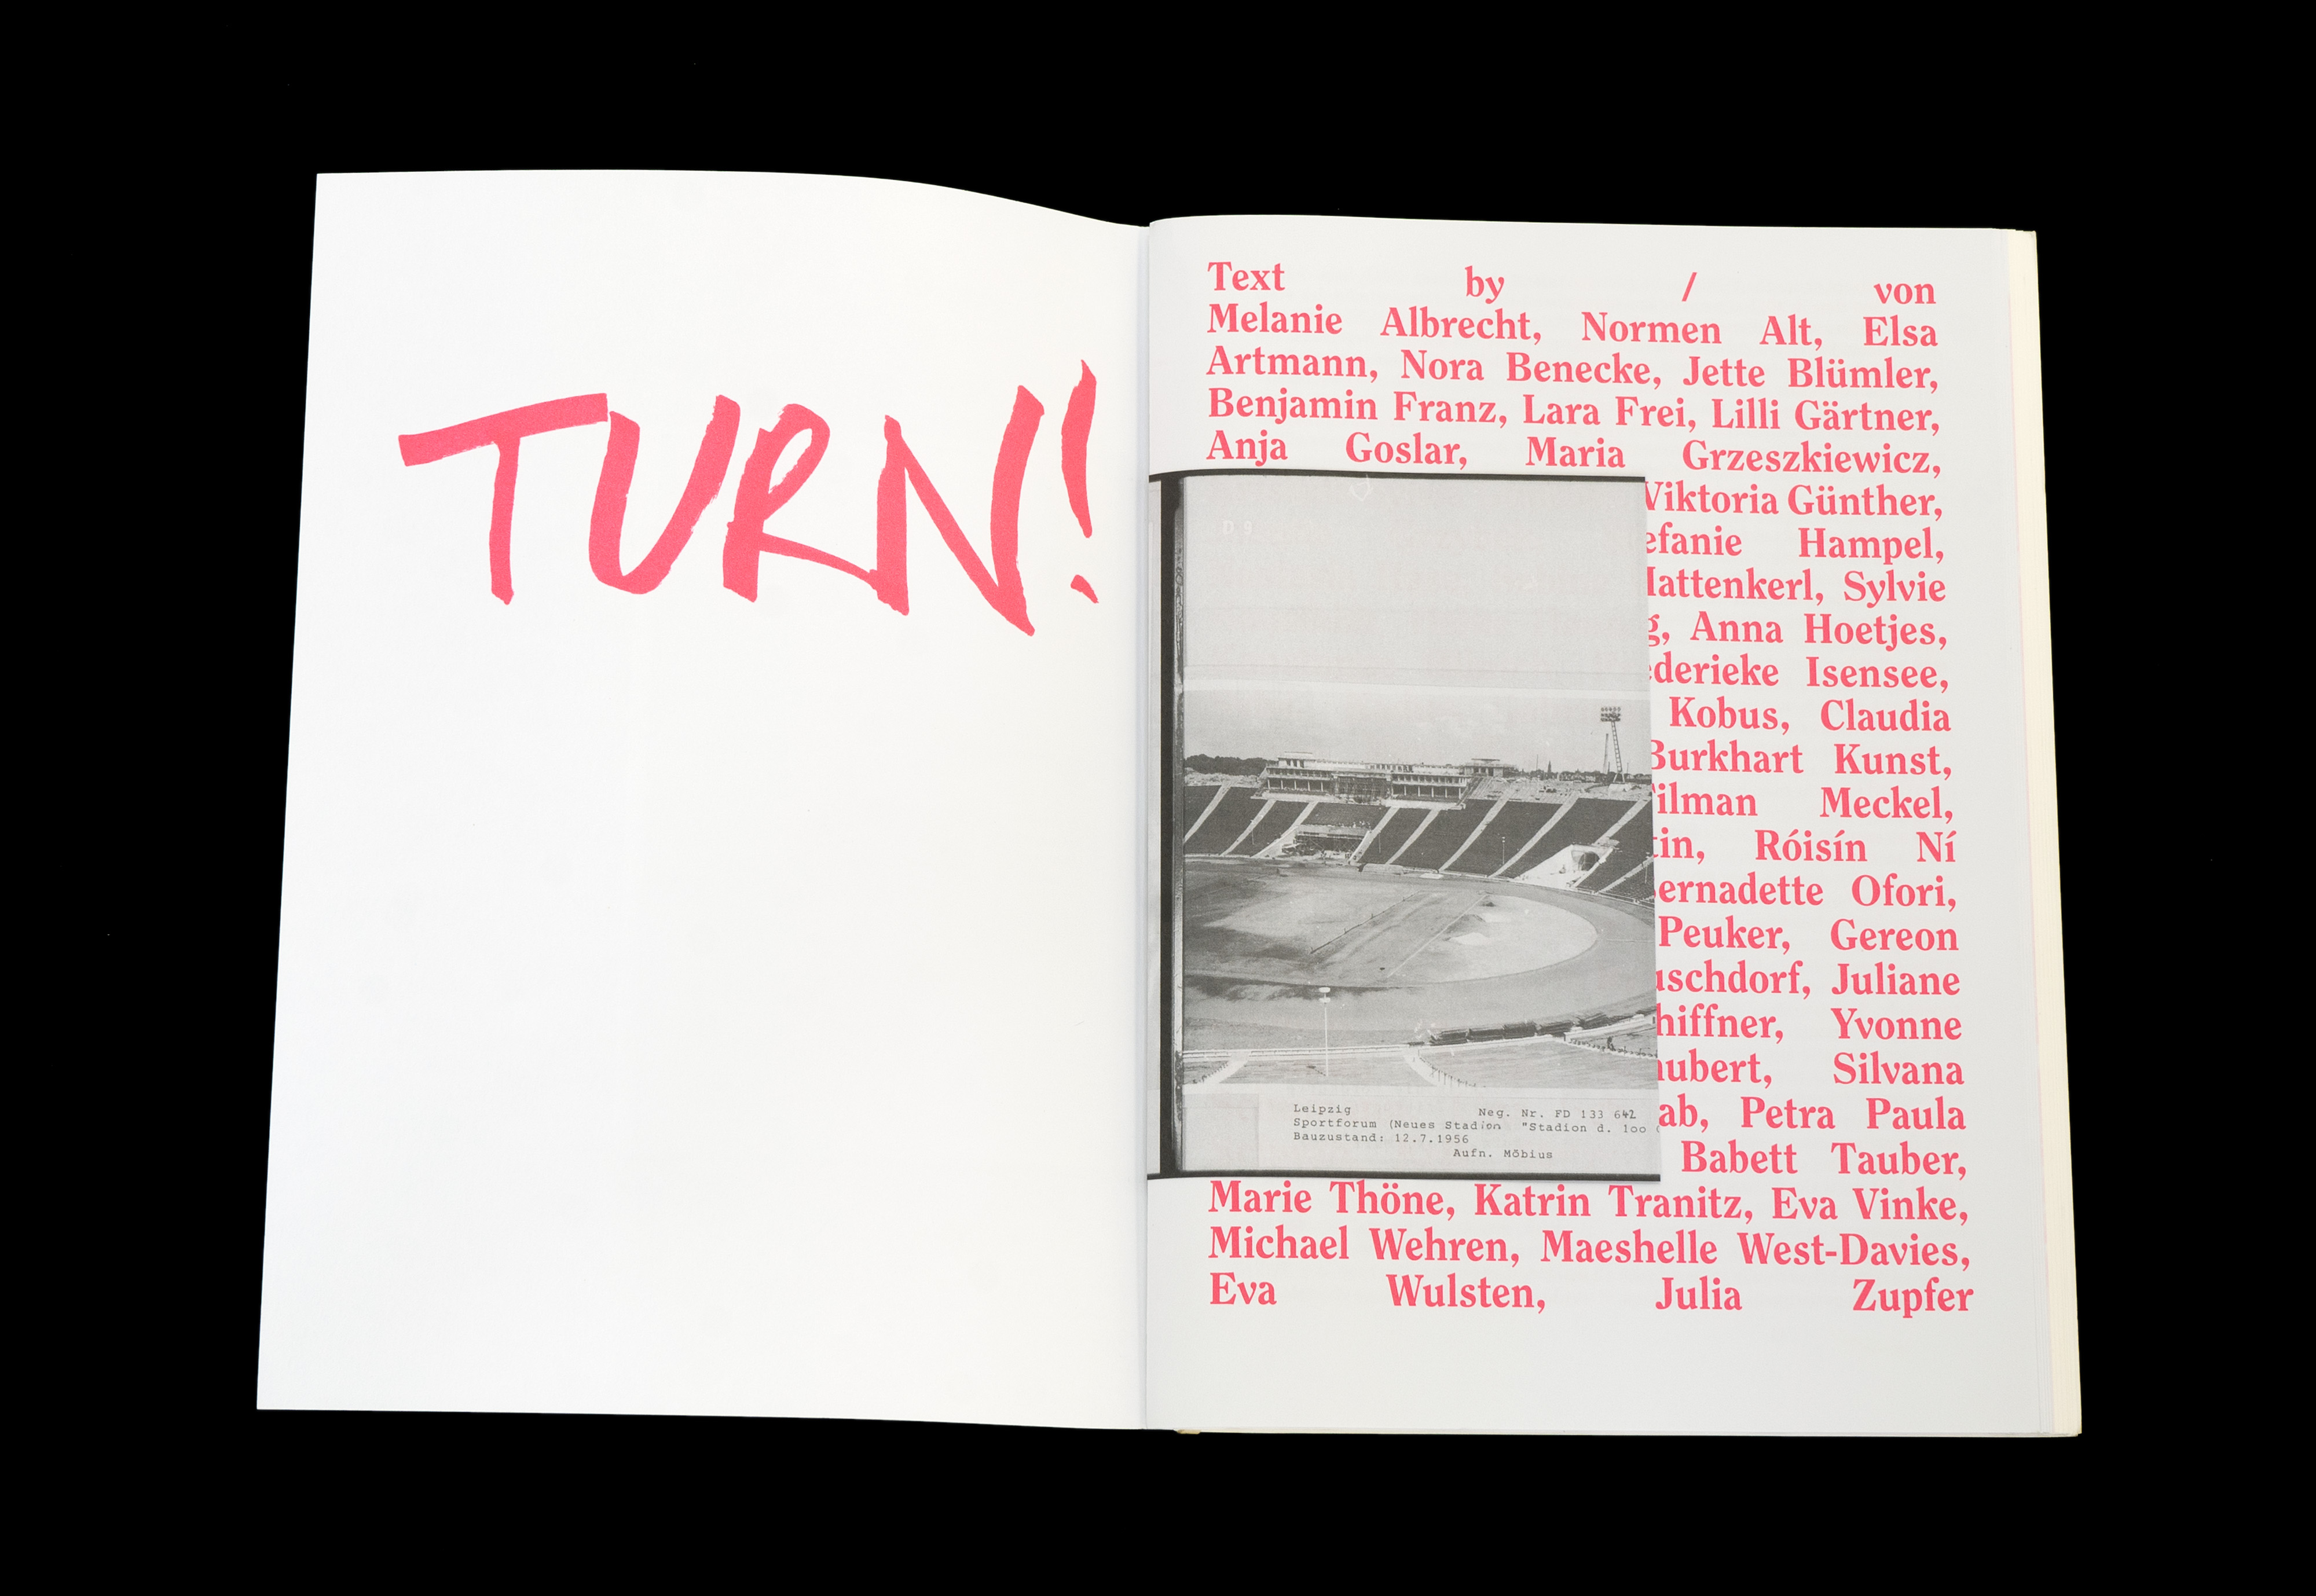 TURN!
Text by / von
Melanie Albrecht, Normen Alt, Elsa
Artmann, Nora Benecke, Jette Blümler,
Benjamin Franz, Lara Frei, Lilli Gärtner,
Anja Goslar, Maria Grzeszkiewicz,
Viktoria Günther,
Hampel,
Sylvie
Anna Hoetjes,
Isensee,
Kobus, Claudia
Burkhart Kunst,
Meckel,
Róisín Ní
Ofori,
Peuker, Gereon
Juliane
Yvonne
Silvana
Petra Paula
Babett Tauber,
Marie Thöne, Katrin Tranitz, Eva Vinke,
Michael Wehren, Maeshelle West-Davies,
Eva Wulsten, Julia Zupfer
D 9
Leipzig Neg. Nr. FD 133 642
Sportforum (Neues Stadion "Stadion d. 1oo
Bauzustand: 12.7.1956
Aufn. Möbius